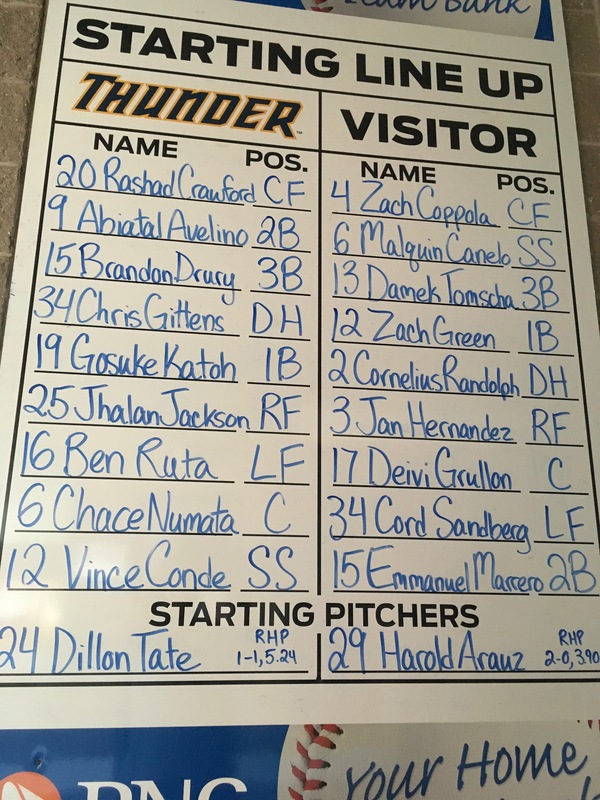 Team Bank
STARTING LINE UP
THUNDER
VISITOR
NAME POS.
20 Rashad Crawford CF
9 Abiatal Avelino 2B
15 Brandon Drury 3B
34 Chris Gittens DH
19 Gosuke Katoh 1B
25 Jhalan Jackson RF
16 Ben Ruta LF
6 Chace Numata C
12 Vince Conde SS
NAME POS.
4 Zach Coppola CF
6 Malquin Canelo SS
13 Damek Tomscha 3B
12 Zach Green 1B
2 Cornelius Randolph DH
3 Jan Hernandez RF
17 Deivi Grullon C
34 Cord Sandberg LF
15 Emmanuel Marrero 2B
STARTING PITCHERS
24 Dillon Tate RHP 1-1, 5.24
29 Harold Arauz RHP 2-0, 3.90
PNC
Your Home